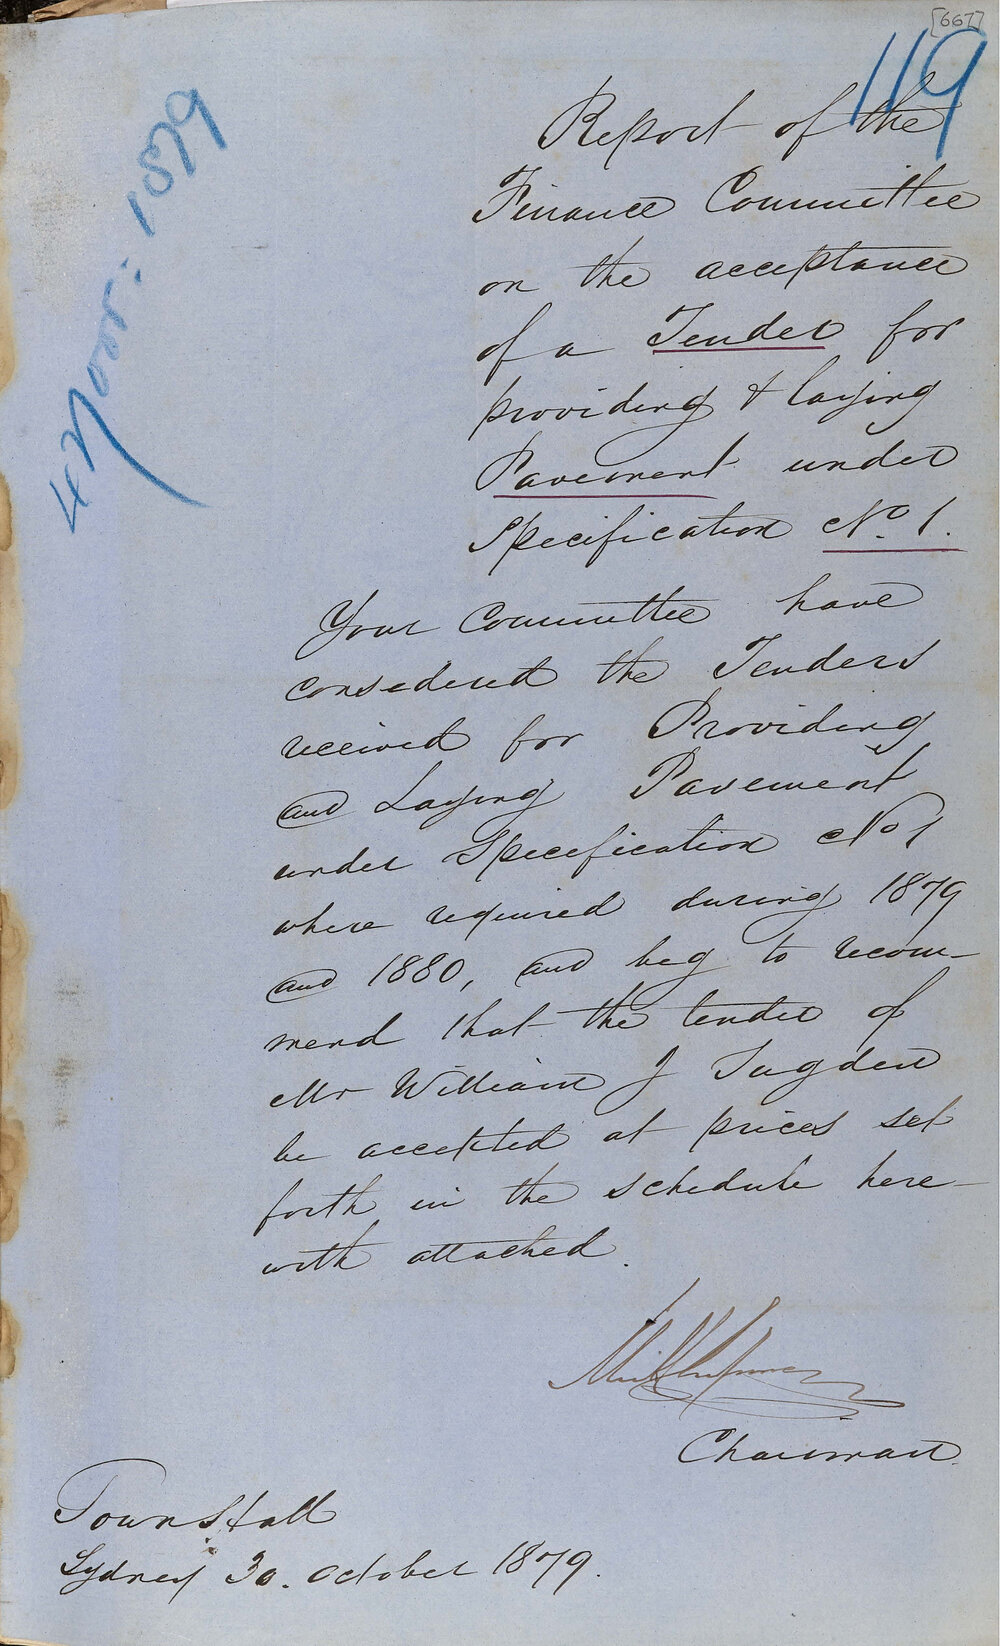 [667]
119
4 Novr: 1879
Report of the
Finance Committee
on the acceptance
of a Tender for
providing & laying
Pavement under
Specification No. 1.
Your Committee have
considered the Tenders
received for Providing
and Laying Pavement
under Specification No 1
where required during 1879
and 1880, and beg to recom-
mend that the tender of
Mr William J Sugden
be accepted at prices set
forth in the schedule here-
with attached.
Chairman.
Town Hall
Sydney 30. October 1879.